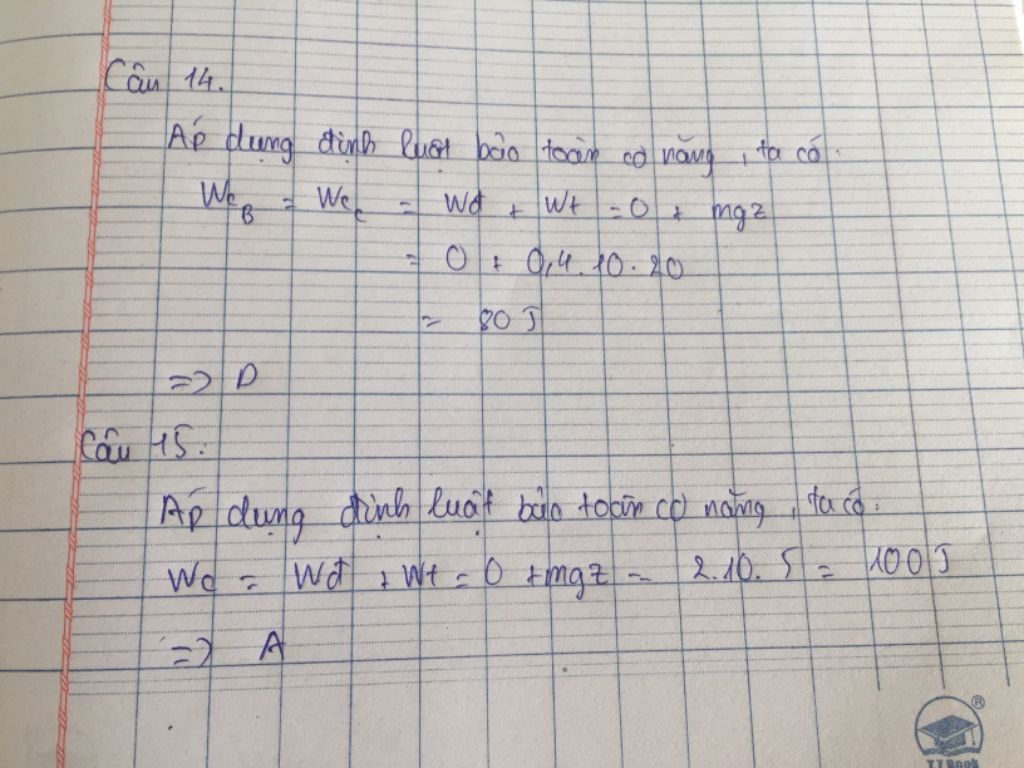 Câu 14.
Áp dụng định luật bảo toàn cơ năng, ta có.
Wc_B = Wc_C = Wđ + Wt = 0 + mgz
= 0 + 0,4.10.20
= 80 J
=> D
Câu 15:
Áp dụng định luật bảo toàn cơ năng, ta có.
Wc = Wđ + Wt = 0 + mgz = 2.10.5 = 100J
=> A
®
TT Book